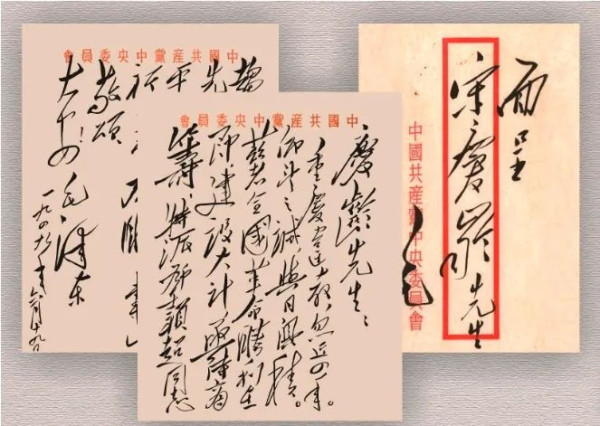 面呈
宋慶齡先生
中國共産黨中央委員會
毛
中國共産黨中央委員會
慶齡先生：
重慶違教，忽近四年。
仰望之誠，與日俱積。
兹者全國革命勝利在
即，建設大計，亟待商
籌，特派鄧穎超同志
中國共産黨中央委員會
趨
先
平
祈
敬頌
大安！
毛澤東
一九四九年六月十九日